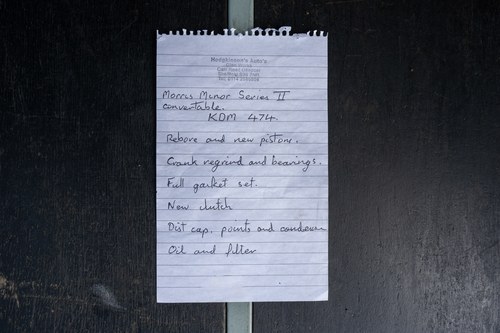 Morris Minor Series II
convertable.
KDM 474.
Rebore and new pistons.
Crank regrind and bearings.
Full gasket set.
New clutch
Dist cap, points and condenser
Oil and filter